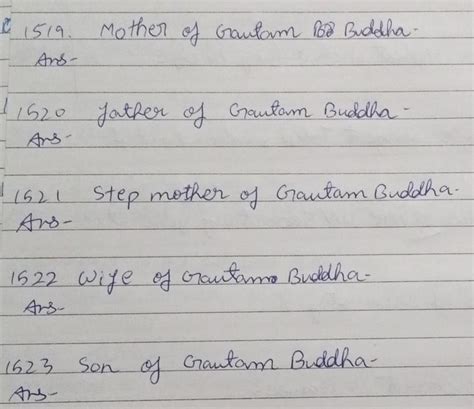 1519. Mother of Gautam Buddha-
Ans-
1520 father of Gautam Buddha-
Ans-
1521 Step mother of Gautam Buddha-
Ans-
1522 Wife of Gautam Buddha-
Ans-
1523 Son of Gautam Buddha-
Ans-